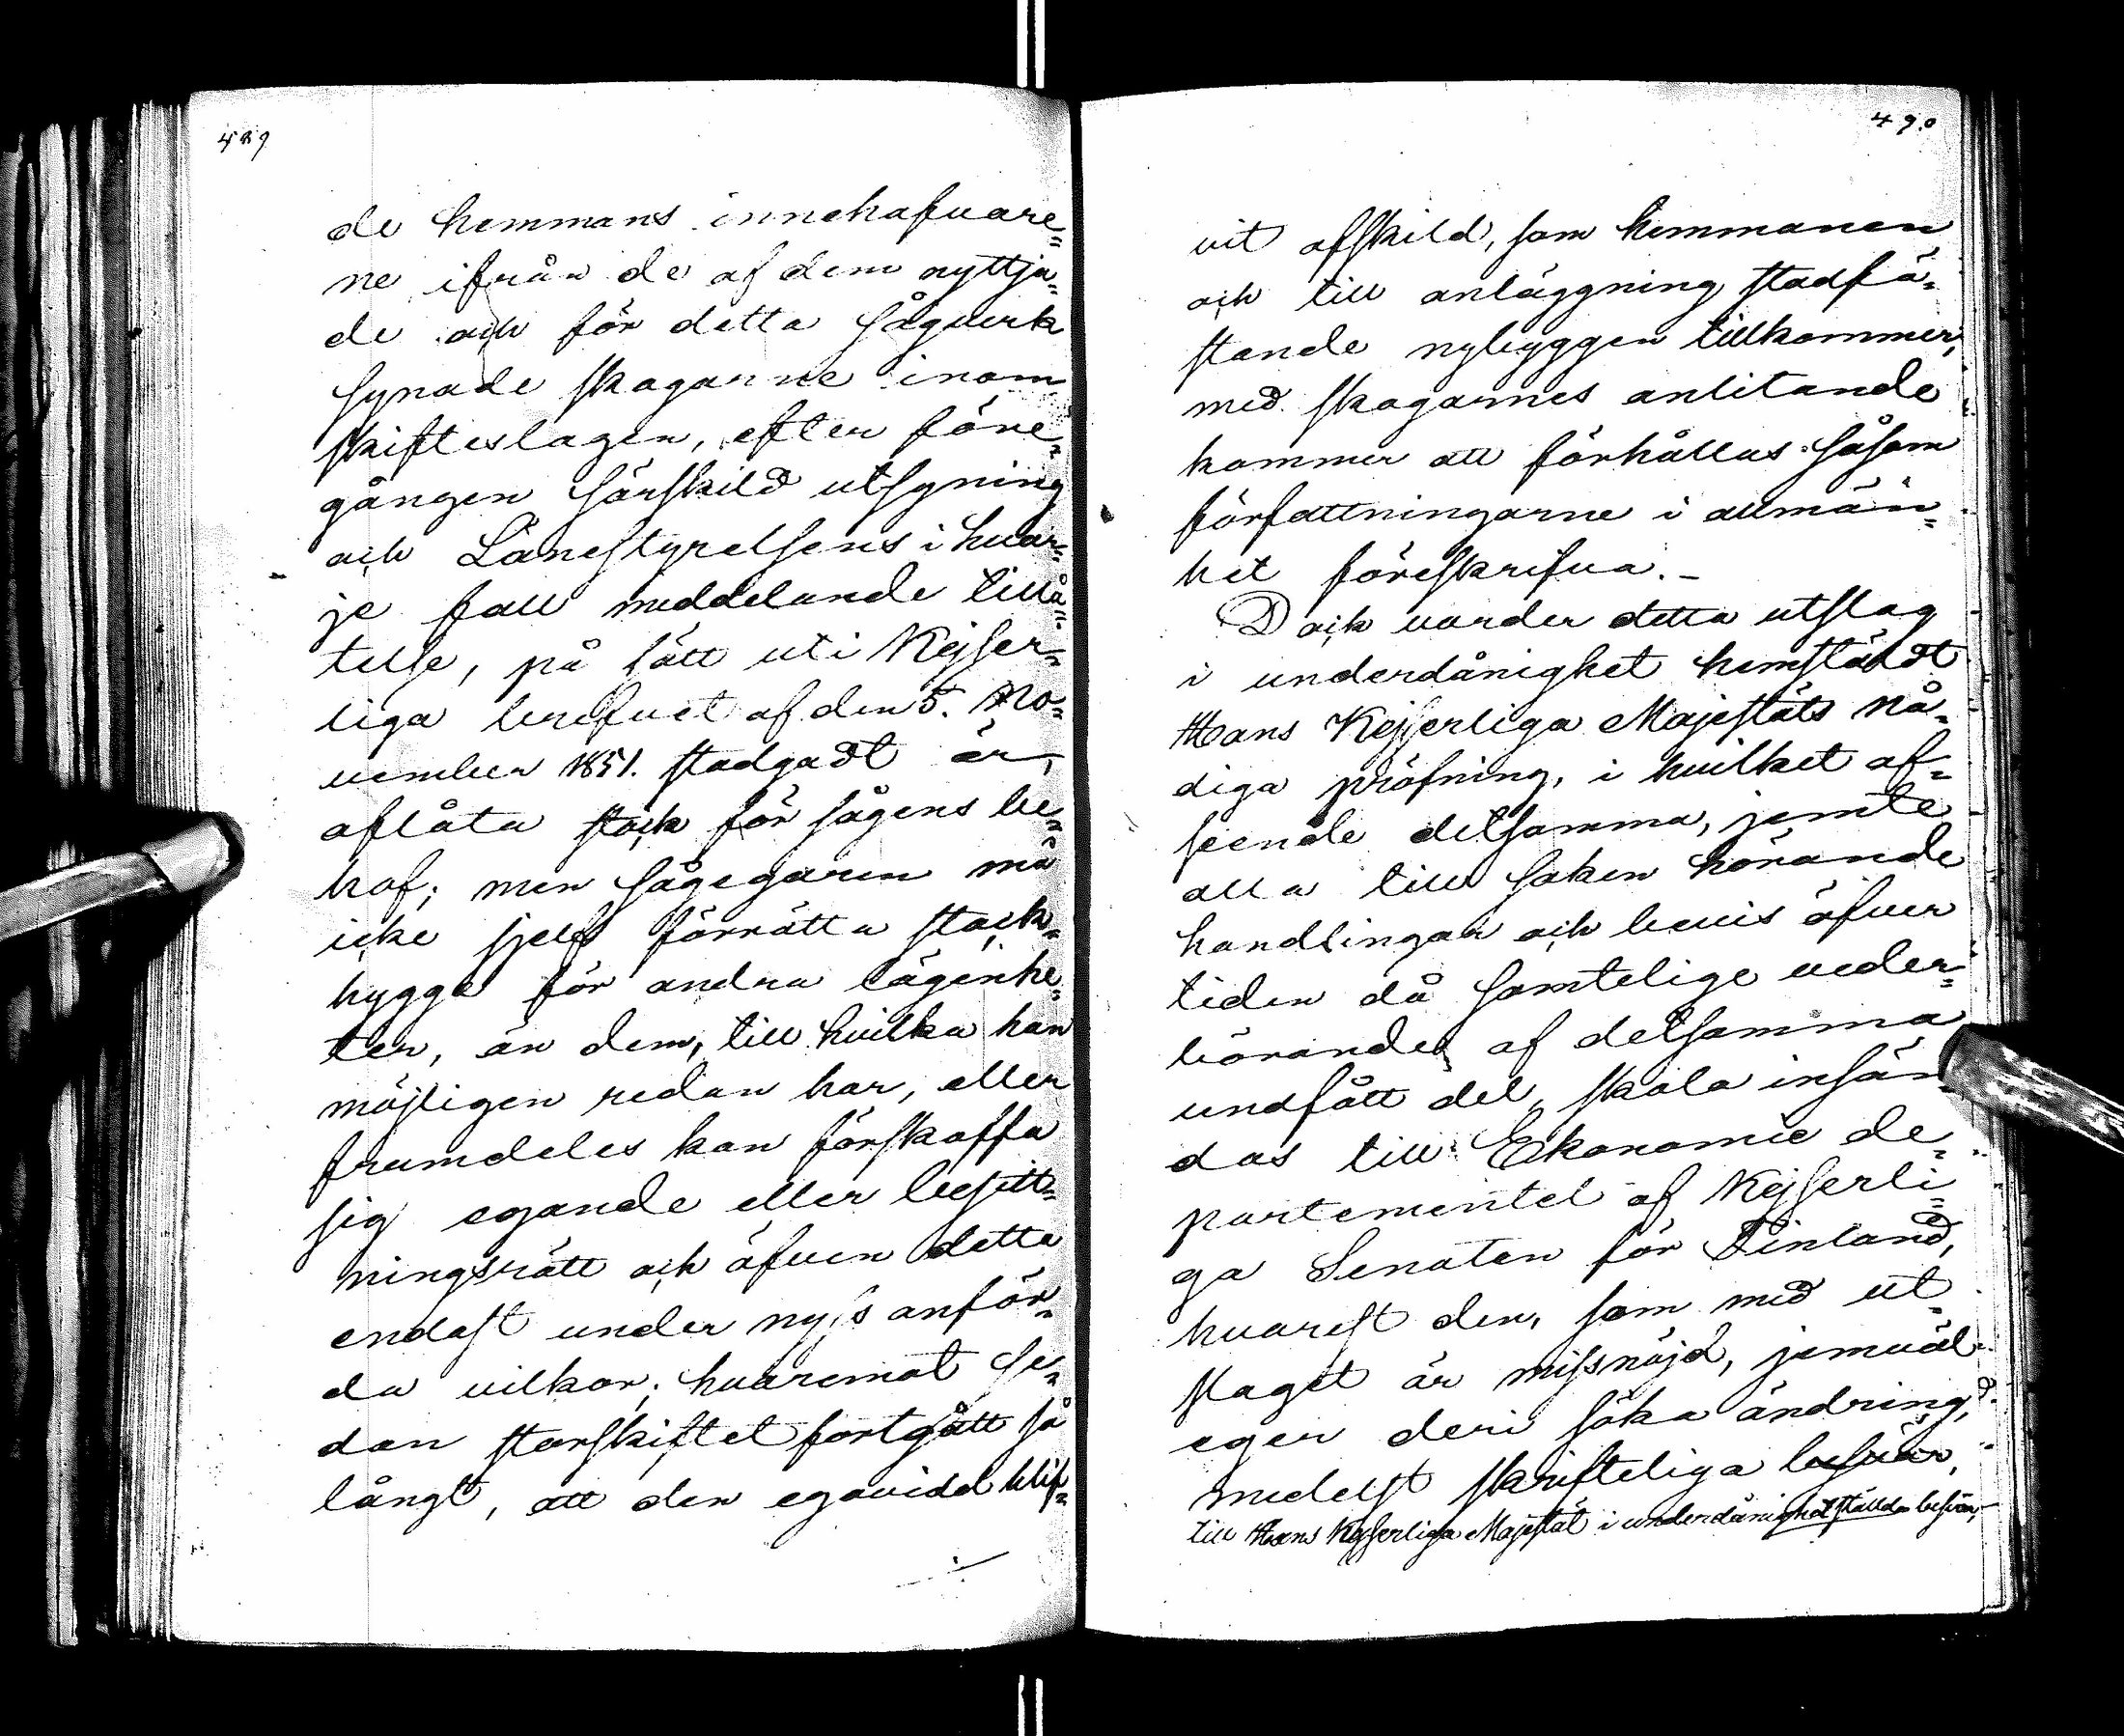 489
de hemmans innehafvare=
ne ifrån de af dem nyttja=
de och för detta sågverk
synade skogarne inom
skifteslagen, efter före=
gången särskild utsyning
och Länestyrelsens i hvar=
je fall meddelande tillå=
telse, på sätt uti Kejser=
liga brefvet af den 5. No=
vember 1851. stadgadt är,
aflåta stock för sågens be=
hof; men sågegaren må
icke sjelf förrätta stock=
hygge för andra lägenhe=
ter, än dem, till hvilka han
möjligen redan har, eller
framdeles kan förskaffa
sig egande eller besitt=
ningsrätt och äfven detta
endast under nyss anför=
da vilkor; hvaremot se=
dan storskiftet fortgått så
långt, att den egovidd blif=
490
vit afskild, som hemmanen
och till anläggning stadfä=
stande nybyggen tillkommer,
med skogarnes anlitande
kommer att förhållas såsom
författningarne i allmän=
het föreskrifva. -
Dock varder detta utslag
i underdånighet hemstäldt
Hans Kejserliga Majestäts nå=
diga pröfning, i hvilket af=
seende detsamma, jemte
alla till saken hörande
handlingar och bevis öfver
tiden då samtelige veder=
börande af detsamma
undfått del, skola insän=
das till Ekonomie de=
partementet af Kejserli=
ga Senaten för Finland,
hvarest den, som med ut=
slaget är missnöjd, jemväl
eger deri söka ändring,
medelst skrifteliga besvär,
till Hans Kejserliga Majestät i underdånighet stälda besvär,